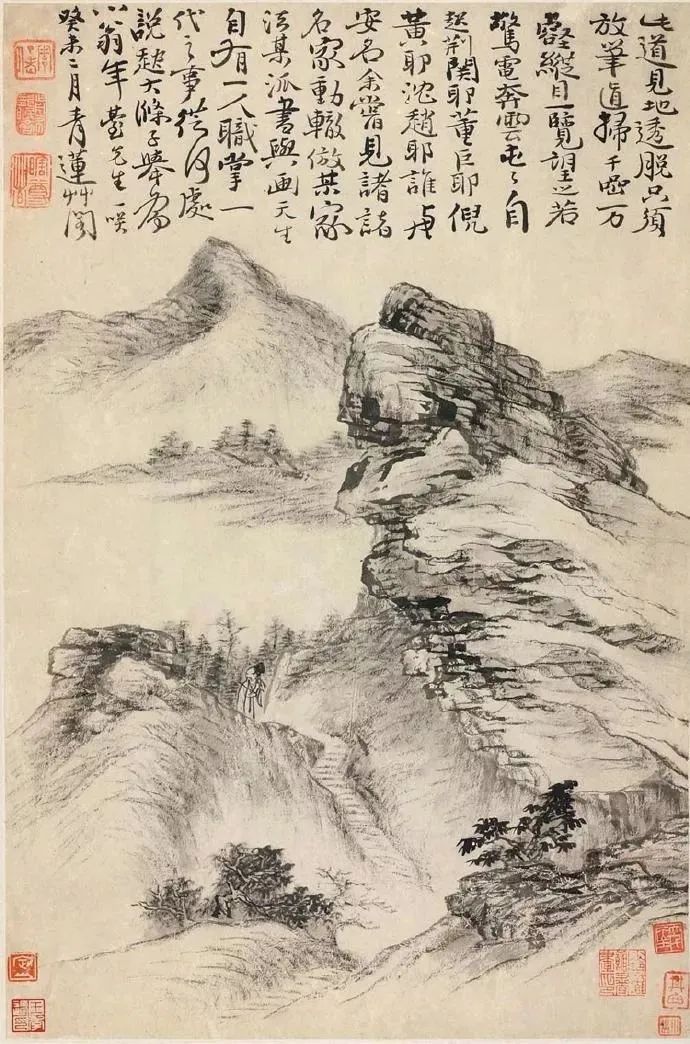 此道見地透脫只須
放筆直掃千巖万
壑縱目一覽望之若
驚電奔雲屯々自
起荊関耶董巨耶倪
黃耶沈趙耶誰与
安名余嘗見諸諸
名家動輒倣某家
法某派書與画天生
自有一人職掌一
代之事從何處
說起大滌子舉為
小翁年臺先生一咲
癸未二月青蓮艸閣